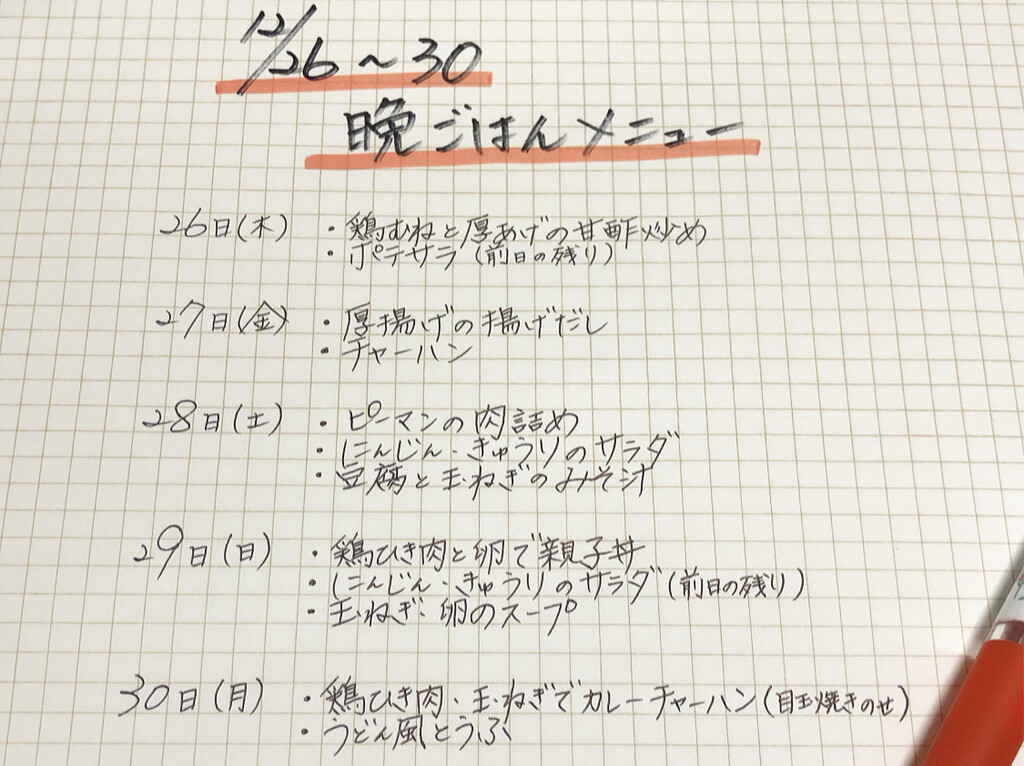 12/26～30
晩ごはんメニュー
26日(木) ・鶏むねと厚あげの甘酢炒め
・ポテサラ(前日の残り)
27日(金) ・厚揚げの揚げだし
・チャーハン
28日(土) ・ピーマンの肉詰め
・にんじん・きゅうりのサラダ
・豆腐と玉ねぎのみそ汁
29日(日) ・鶏ひき肉と卵で親子丼
・にんじん・きゅうりのサラダ(前日の残り)
・玉ねぎ・卵のスープ
30日(月) ・鶏ひき肉・玉ねぎでカレーチャーハン(目玉焼きのせ)
・うどん風とうふ